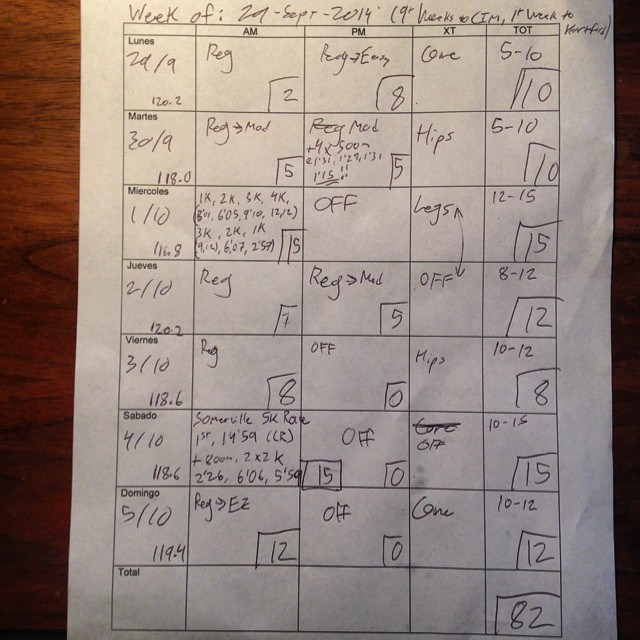 Week of: 29-Sept-2014 (9 weeks to CIM, 1 week to Hartford)
AM PM XT TOT
Lunes
29/9 Reg Reg→Easy Core 5-10
120.2 2 8 10
Martes
30/9 Reg→Mod Reg Mod Hips 5-10
+4x500m
1'31, 1'29, 1'31
1'15!!
118.0 5 5 10
Miercoles
1/10 1K, 2K, 3K, 4K, OFF Legs 12-15
6'05, 9'10, 12,12)
3K, 2K, 1K
(9,12), 6,07, 2'57)
118.8 15 15
Jueves
2/10 Reg Reg→Mod OFF 8-12
120.2 7 5 12
Viernes
3/10 Reg OFF Hips 10-12
118.6 8 0 8
Sabado
4/10 Somerville 5K Race OFF Core 10-15
1st, 14'59 (CR) OFF
+800m, 2x2K
2'26, 6'06, 5'59
118.6 15 0 15
Domingo
5/10 Reg→EZ Off Core 10-12
119.4 12 0 12
Total
82